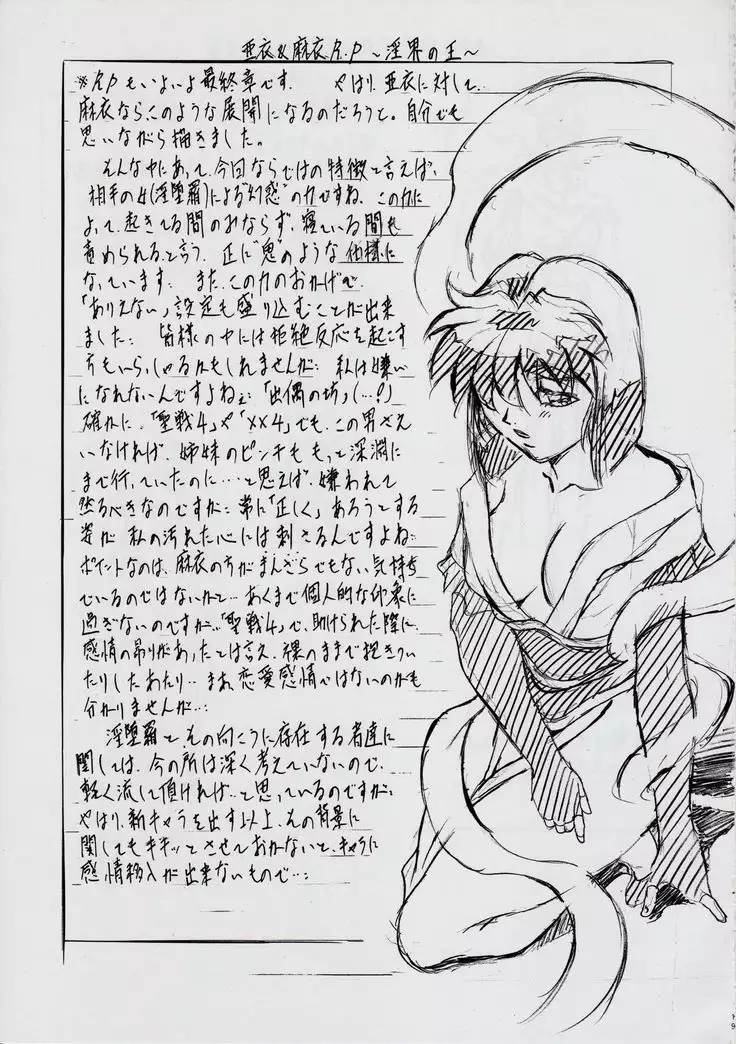 亜衣&麻衣R.P ～淫界の王～
※R.Pもいよいよ最終章です. やはり、亜衣に対して、
麻衣なら、このような展開になるのだろうと。自分でも
思いながら描きました。
そんな中にあって、今回ならではの特徴と言えば、
相手の女(淫堕羅)による"幻惑"の力ですね。この力に
よって、起きてる間のみならず、寝ている間も
責められると言う、正に"鬼"のような仕様に
なっています… また、この力のおかげで、
「ありえない」設定も盛り込むことが出来
ました… 皆様の中には拒絶反応を起こす
方もいらっしゃるかもしれませんが… 私は嫌い
になれないんですよねぇ…「出偶の坊」(…?)
確かに、「聖戦4」や「××4」でも、この男さえ
いなければ、姉妹のピンチも もっと深淵に
まで行っていたのに…と思えば、嫌われて
然るべきなのですが… 常に「正しく」あろうとする
姿が 私の汚れた心には刺さるんですよね…
ポイントなのは、麻衣の方がまんざらでもない、気持ち
でいるのではないかと… あくまで個人的な印象に
過ぎないのですが…「聖戦4」で、助けられた際に、
感情の昂りがあったとは言え、裸のままで抱きつい
たりしたあたり… まぁ、恋愛感情ではないのかも
分かりませんが…
淫堕羅と、その向こうに存在する者達に
関しては、今の所は深く考えていないので、
軽く流して頂ければ…と思っているのですが、
やはり、新キャラを出す以上、その背景に
関してもキチッとさせておかないと、キャラに
感情移入が出来ないもので…